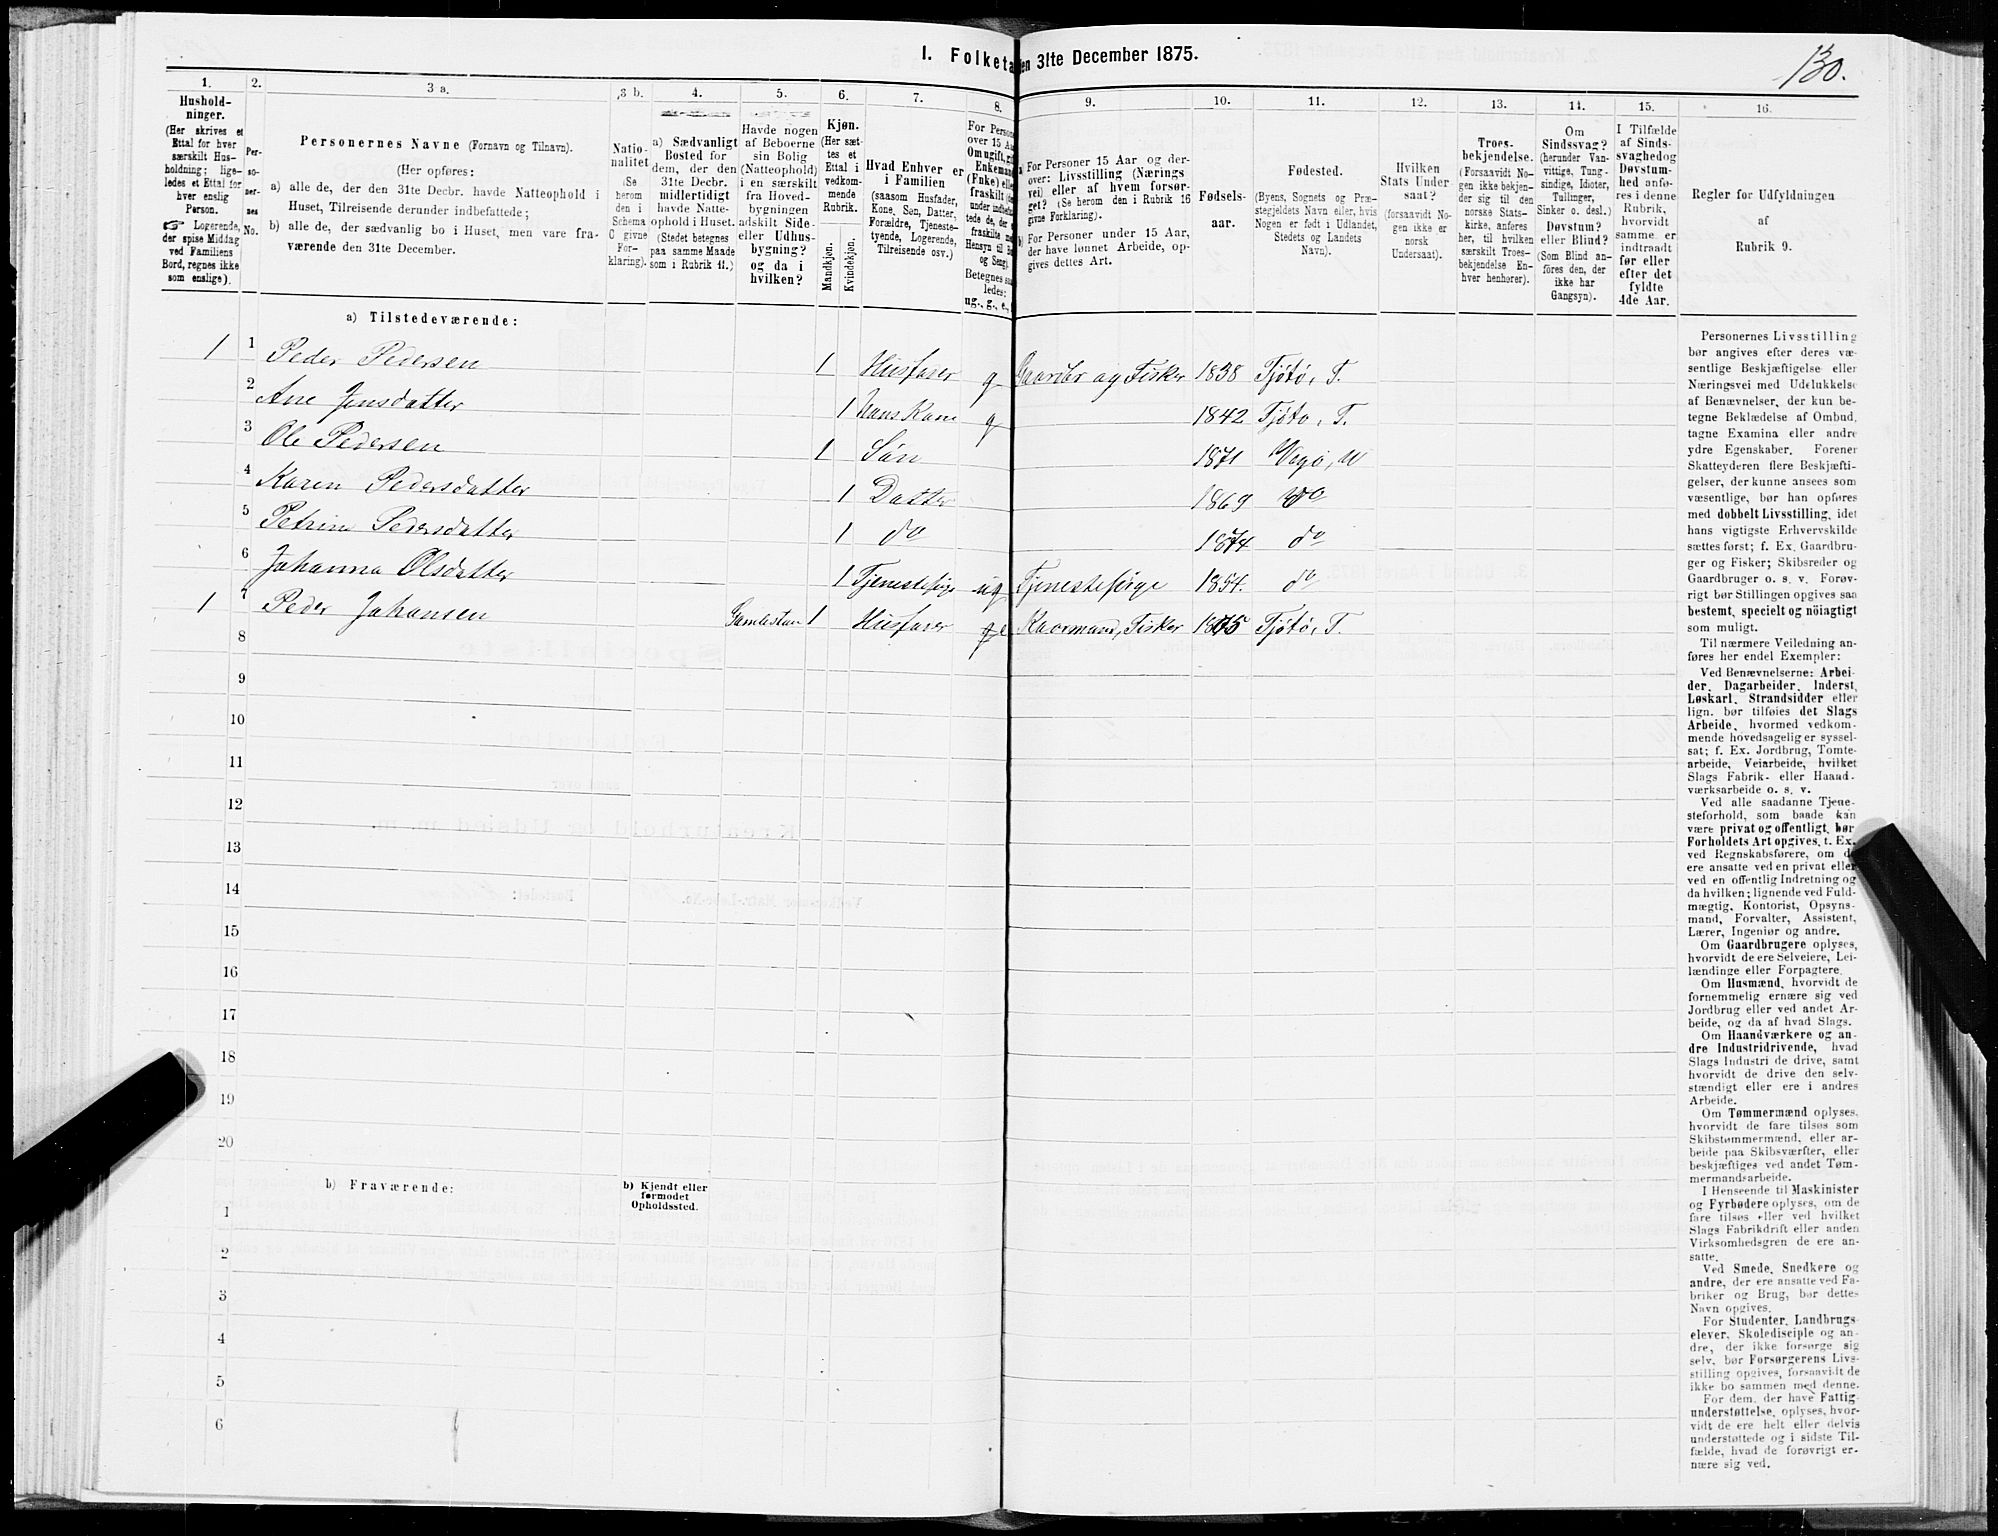 130.
I. Folketa en 31te December 1875.
1. 2. 3 a. 3 b. 4. 5. 6. 7. 8. 9. 10. 11. 12. 13. 14. 15. 16.
Hushold-
ninger.
(Her skrives et
Ettal for hver
særskilt Hus-
holdning; lige-
ledes et Ettal for
hver enslig
Person.
☞ Logerende,
der spise Middag
ved Familiens
Bord, regnes ikke
som enslige).
Per-
so-
ner-
nes
No.
Personernes Navne (Fornavn og Tilnavn).
(Her opføres:
a) alle de, der den 31te Decbr. havde Natteophold i
Huset, Tilreisende derunder indbefattede;
b) alle de, der sædvanlig bo i Huset, men vare fra-
værende den 31te December.
Natio-
nalitet
(Se
herom
den i
Schema
C givne
For-
klaring).
a) Sædvanligt
Bosted for
dem, der den
31te Decbr.
midlertidigt
havde Natte-
ophold i Huset.
(Stedet betegnes
paa samme Maade
som i Rubrik 11.)
Havde nogen
af Beboerne
sin Bolig
(Natteophold)
i en særskilt
fra Hoved-
bygningen
adskilt Side-
eller Udhus-
bygning?
og da i
hvilken?
Kjøn.
(Her sæt-
tes et
Ettal i
vedkom-
mende
Rubrik.
Mandkjøn.
Kvindekjøn.
Hvad Enhver er
i Familien
(saasom Husfader,
Kone, Søn, Datter,
Forældre, Tjeneste-
tyende, Logerende,
Tilreisende osv.)
For Persone
over 15 Aar
Om ugift, gift
Enkemand
(Enke) eller
fraskilt
under indbefat-
tede de, der
fraskilte m
Hensyn til B
og Seng).
Betegnes saa
ledes:
ug., g., e.,
a) For Personer 15 Aar og der-
over: Livsstilling (Nærings
vei) eller af hvem forsør-
get? (Se herom den i Rubrik 16
givne Forklaring).
b) For Personer under 15 Aar,
der have lønnet Arbeide, op-
gives dettes Art.
Fødsels-
aar.
Fødested.
(Byens, Sognets og Præ-
stegjeldets Navn eller, hvis
Nogen er født i Udlandet,
Stedets og Landets
Navn).
Hvilken
Stats Under-
saat?
(forsaavidt No-
gen ikke er
norsk
Undersaat).
Troes-
bekjendelse.
(Forsaavidt No-
gen ikke bekjen-
der sig til den
norske Stats-
kirke, anføres
her, til hvilken
særskilt Troes-
bekjendelse En-
hver henhører).
Om
Sindssvag?
(herunder Van-
vittige, Tung-
sindige, Idioter,
Tullinger,
Sinker o. desl.)
Døvstum?
eller Blind?
(Som Blind an-
føres den, der
ikke har
Gangsyn).
I Tilfælde
af Sinds-
svaghed og
Døvstum-
hed anfø-
res i denne
Rubrik,
hvorvidt
samme er
indtraadt
før eller
efter det
fyldte
4de Aar.
Regler for Udfyldningen
af
Rubrik 9.
a) Tilstedeværende:
1 1 Peder Pedersen 1 Husfader g Gaardbr og Fisker 1838 Tjøtø, T.
2 Ane Jensdatter 1 hans Kone g 1842 Tjøtø, T.
3 Ole Pedersen 1 Søn 1871 Vegø,
4 Karen Pedersdatter 1 Datter 1869 do
5 Petrine Pedersdatter 1 do 1874 do
6 Johanna Olsdatter 1 Tjenestepige ug Tjenestepige 1854. do
1 7 Peder Johansen 1 Husfader Kaarmand, Fisker Tjøtø, T.
8
9
10
11
12
13
14
15
16
17
18
19
20
b) Fraværende:
b) Kjendt eller
formodet
Opholdssted.
1
2
3
4
5
6
Personernes Livsstilling
bør angives efter deres væ-
sentlige Beskjæftigelse eller
Næringsvei med Udelukkelse
af Benævnelser, der kun be-
tegne Beklædelse af Ombud,
tagne Examina eller andre
ydre Egenskaber. Forener
Skatteyderen flere Beskjæfti-
gelser, der kunne ansees som
væsentlige, bør han opføres
med dobbelt Livsstilling, idet
hans vigtigste Erhvervskilde
sættes først; f. Ex. Gaardbru-
ger og Fisker; Skibsreder og
Gaardbruger o. s. v. Forøv-
rigt bør Stillingen opgives saa
bestemt, specielt og nöiagtigt
som muligt.
Til nærmere Veiledning an-
føres her endel Exempler:
Ved Benævnelserne: Arbei-
der, Dagarbeider, Inderst,
Løskarl, Strandsidder eller
lign. bør tilføies det Slags
Arbeide, hvormed vedkom-
mende hovedsagelig er syssel-
sat; f. Ex. Jordbrug, Tomte-
arbeide, Veiarbeide, hvilket
Slags Fabrik- eller Haand-
værksarbeide o. s. v.
Ved alle saadanne Tjene-
steforhold, som baade kan
være privat og offentligt, bør
Forholdets Art opgives, t. Ex.
ved Regnskabsførere, om de
ere ansatte ved en privat eller
ved en offentlig Indretning og
da hvilken; lignende ved Fuld-
mægtig, Kontorist, Opsyns-
mand, Forvalter, Assistent,
Lærer, Ingeniør og andre.
Om Gaardbrugere oplyses,
hvorvidt de ere Selveiere, Lei-
lændinge eller Forpagtere.
Om Husmænd, hvorvidt de
fornemmelig ernære sig ved
Jordbrug eller ved andet Ar-
beide, og da af hvad Slags.
Om Haandværkere og an-
dre Industridrivende, hvad
Slags Industri de drive, samt
hvorvidt de drive den selv-
stændigt eller ere i andres
Arbeide.
Om Tømmermænd oplyses,
hvorvidt de fare tilsøs som
Skibstømmermænd, eller ar-
beide paa Skibsværfter, eller
beskjæftiges ved andet Tøm-
mermandsarbeide.
I Henseende til Maskinister
og Fyrbødere oplyses, om de
fare tilsøs eller ved hvilket
Slags Fabrikdrift eller anden
Virksomhedsgren de ere an-
satte.
Ved Smede, Snedkere og
andre, der ere ansatte ved Fa-
briker og Brug, bør dettes
Navn opgives.
For Studenter, Landbrugs-
elever, Skoledisciple og an-
dre, der ikke forsørge sig
selv, bør Forsørgerens Livs-
stilling opgives, forsaavidt de
ikke bo sammen med denne.
For dem, der have Fattig-
understøttelse, oplyses, hvor-
vidt de ere helt eller delvis
understøttede og i sidste Til-
fælde, hvad de forøvrigt er-
nære sig ved.